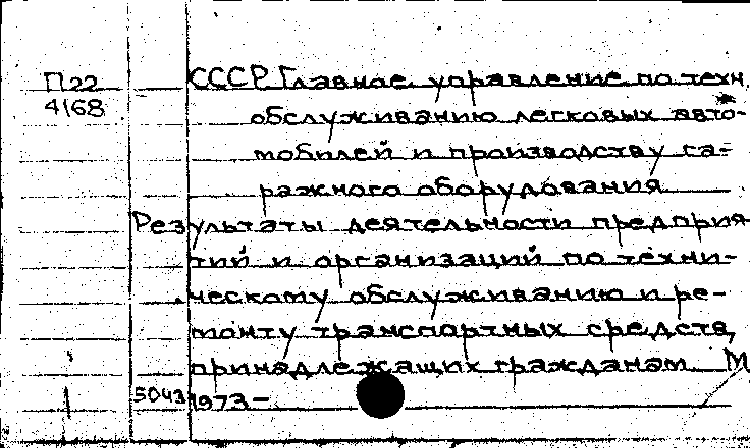 П22 СССР. Главное управление по техн.
4168 обслуживанию легковых авто-
мобилей и производству га-
ражного оборудования
Результаты деятельности предприя-
тий и организаций по техни-
ческому обслуживанию и ре-
монту транспортных средств,
принадлежащих гражданам. М
5043 1973-